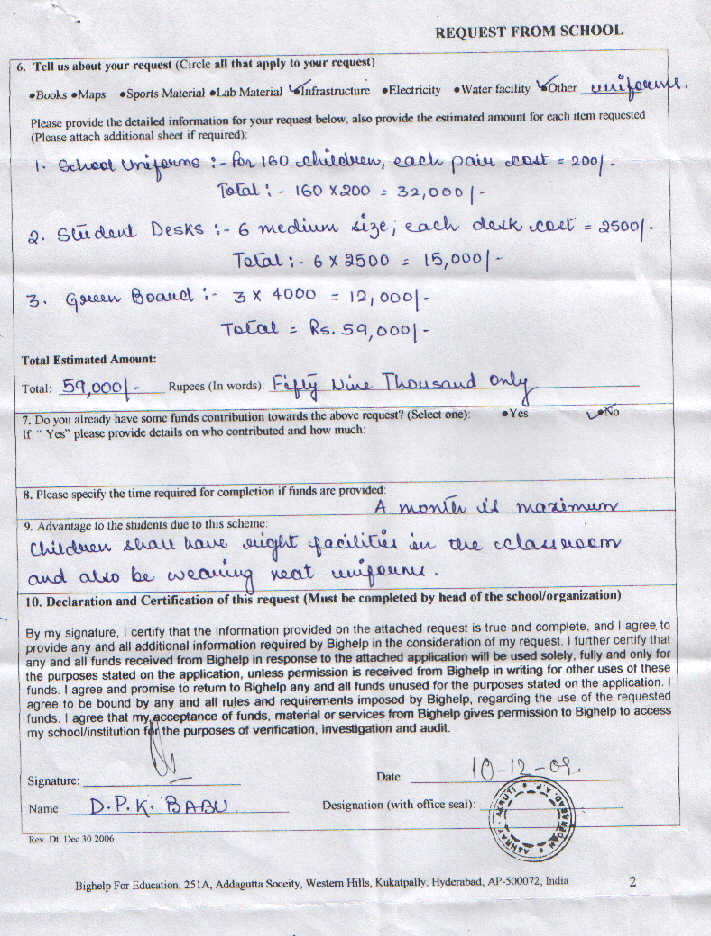 REQUEST FROM SCHOOL
6. Tell us about your request (Circle all that apply to your request)
•Books •Maps •Sports Material •Lab Material •Infrastructure •Electricity •Water facility •Other uniforms.
Please provide the detailed information for your request below, also provide the estimated amount for each item requested
(Please attach additional sheet if required):
1. School Uniforms :- for 160 children, each pair cost = 200/-
Total :- 160 x 200 = 32,000/-
2. Student Desks :- 6 medium size; each desk cost = 2500/-
Total :- 6 x 2500 = 15,000/-
3. Green Board :- 3 x 4000 = 12,000/-
Total = Rs. 59,000/-
Total Estimated Amount:
Total: 59,000/- Rupees (In words) Fifty Nine Thousand only
7. Do you already have some funds contribution towards the above request? (Select one): •Yes •No
If " Yes" please provide details on who contributed and how much:
8. Please specify the time required for completion if funds are provided:
A month is maximum
9. Advantage to the students due to this scheme:
Children shall have right facilities in the classroom
and also be wearing neat uniforms.
10. Declaration and Certification of this request (Must be completed by head of the school/organization)
By my signature, I certify that the information provided on the attached request is true and complete, and I agree to
provide any and all additional information required by Bighelp in the consideration of my request. I further certify that
any and all funds received from Bighelp in response to the attached application will be used solely, fully and only for
the purposes stated on the application, unless permission is received from Bighelp in writing for other uses of these
funds. I agree and promise to return to Bighelp any and all funds unused for the purposes stated on the application. I
agree to be bound by any and all rules and requirements imposed by Bighelp, regarding the use of the requested
funds. I agree that my acceptance of funds, material or services from Bighelp gives permission to Bighelp to access
my school/institution for the purposes of verification, investigation and audit.
Signature: Date 10-12-09.
Name D.P.K. BABU Designation (with office seal):
Rev. Dt. Dec 30 2006
Bighelp For Education, 251A, Addagutta Soceity, Western Hills, Kukatpally, Hyderabad, AP-500072, India 2